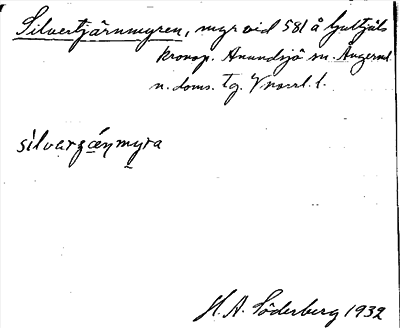 Silvertjärnmyren, myr vid 581 å Gulltjäls
kronop. Anundsjö sn. Ångerml.
n. doms. tg. Vnorrl. l.
silvarʒánmyra
H. A. Söderberg 1932